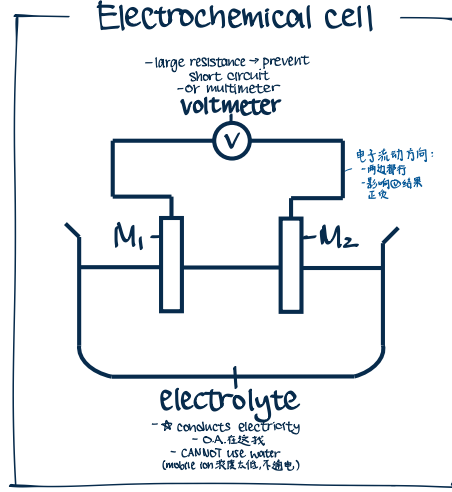 Electrochemical cell
- large resistance → prevent
short circuit
- or multimeter
voltmeter
V
电子流动方向:
- 两边都行
- 影响Ⓥ结果
正负
M₁
M₂
electrolyte
- ☆ conducts electricity
- O.A.在这找
- CANNOT use water
(mobile ion 浓度太低,不通电)